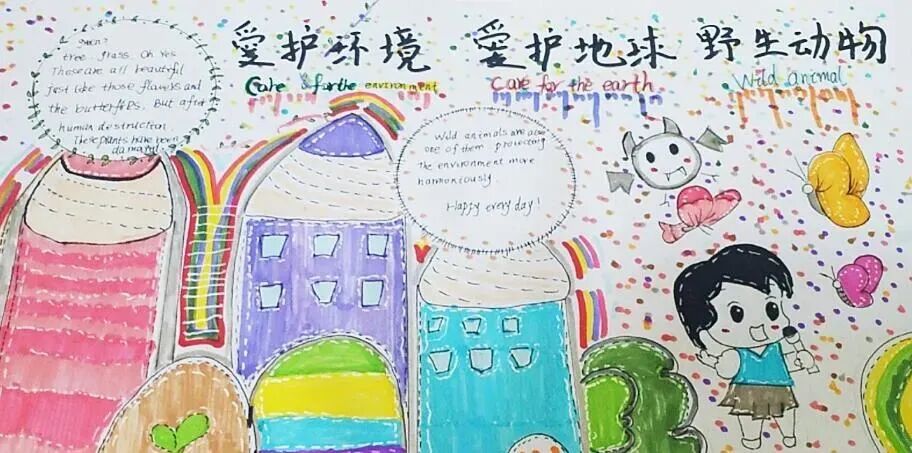 爱护环境 爱护地球 野生动物
Care for the environment Care for the earth Wild animal
tree. grass. Oh Yes
These are all beautiful
just like those flowers and
the butterflies. But after
human destruction
These plants have been
damaged
Wild animals are also
one of them protecting
the environment more
harmoniously.
Happy every day!